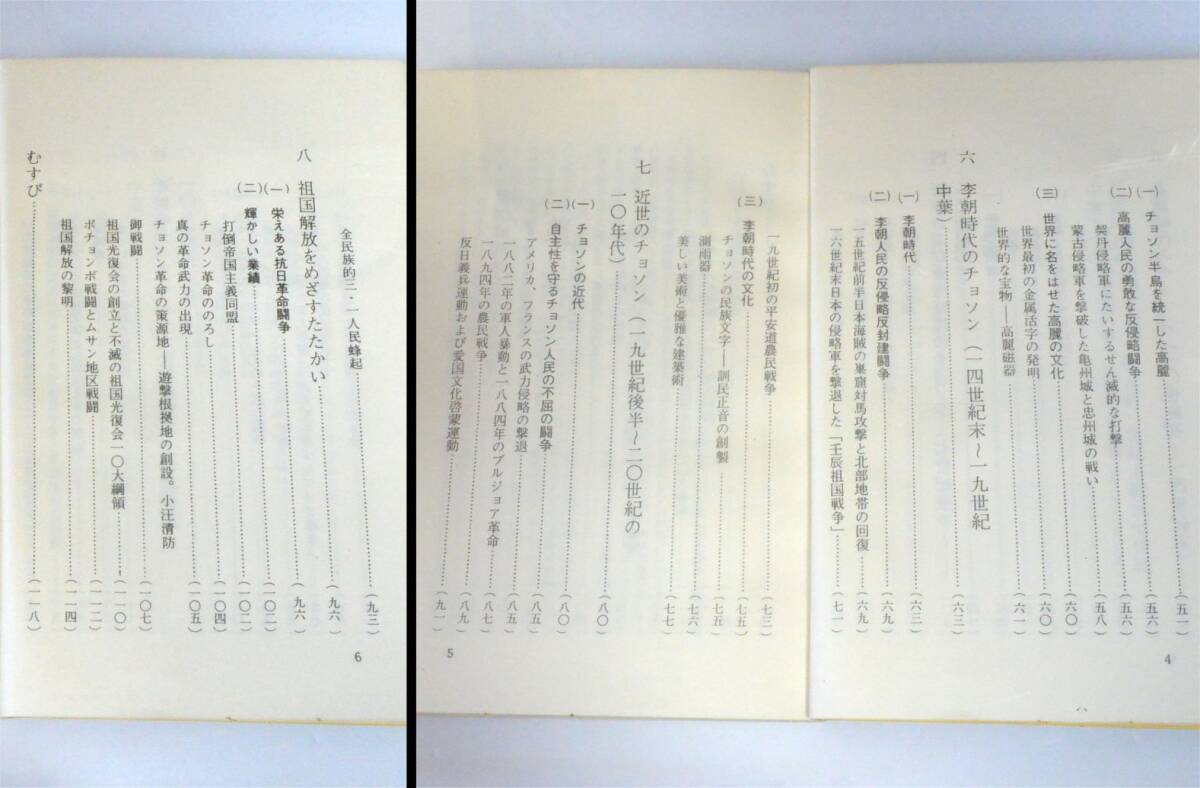 (一) チョソン半島を統一した高麗……(五一)
(二) 高麗人民の勇敢な反侵略闘争……(五六)
契丹侵略軍にたいするせん滅的な打撃……(五六)
蒙古侵略軍を撃破した亀州城と忠州城の戦い……(五八)
(三) 世界に名をはせた高麗の文化……(六〇)
世界最初の金属活字の発明……(六〇)
世界的な宝物——高麗磁器……(六一)
六 李朝時代のチョソン(一四世紀末〜一九世紀
中葉)……(六三)
(一) 李朝時代……(六三)
(二) 李朝人民の反侵略反封建闘争……(六九)
一五世紀前半日本海賊の巣窟対馬攻撃と北部地帯の回復……(六九)
一六世紀末日本の侵略軍を撃退した「壬辰祖国戦争」……(七一)
4
一九世紀初の平安道農民戦争……(七三)
(三) 李朝時代の文化……(七五)
チョソンの民族文字——訓民正音の創製……(七五)
測雨器……(七六)
美しい美術と優雅な建築術……(七七)
七 近世のチョソン(一九世紀後半〜二〇世紀の
一〇年代)……(八〇)
(一) チョソンの近代……(八〇)
(二) 自主性を守るチョソン人民の不屈の闘争……(八五)
アメリカ、フランスの武力侵略の撃退……(八五)
一八八二年の軍人暴動と一八八四年のブルジョア革命……(八七)
一八九四年の農民戦争……(八九)
反日義兵運動および愛国文化啓蒙運動……(九一)
5
全民族的三・一人民蜂起……(九三)
八 祖国解放をめざすたたかい……(九六)
(一) 栄えある抗日革命闘争……(九六)
(二) 輝かしい業績……(一〇二)
打倒帝国主義同盟……(一〇二)
チョソン革命ののろし……(一〇四)
真の革命武力の出現……(一〇五)
チョソン革命の策源地——遊撃根拠地の創設。小汪清防
御戦闘……(一〇七)
祖国光復会の創立と不滅の祖国光復会一〇大綱領……(一一〇)
ポチョンボ戦闘とムサン地区戦闘……(一一二)
祖国解放の黎明……(一一四)
むすび……(一一八)
6